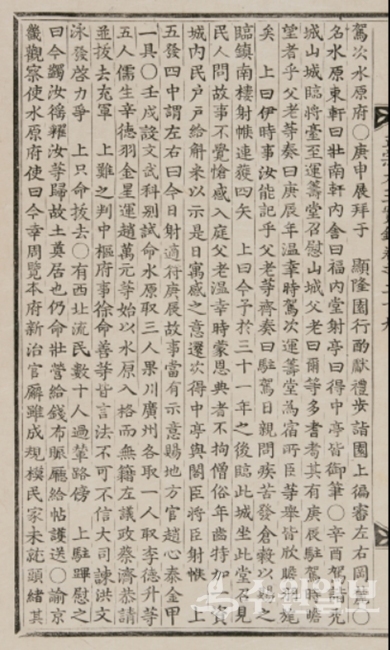 駕次水原府○庚申展拜于 顯隆園行酌獻禮步詣園上徧審左右岡麓○
名水原東軒曰壯南軒內舍曰福內堂射亭曰得中亭皆御筆○辛酉駕詣禿
城山城臨將臺至運籌堂召慰山城父老曰爾等多耆耈其有庚辰駐駕時瞻
望者乎父老等奏曰庚辰年溫幸時駕次運籌堂爲宿所臣等擧皆放瞻羽旄
矣 上曰伊時事汝能記乎父老等齊奏曰駐駕日親問疾苦發倉穀以賜之
臨鎭南樓射帿連獲四矢 上曰今予於三十一年之後臨此城坐此堂召見
民人問故事不覺愴感入庭父老溫幸時蒙恩典者不拘僧俗年齒特加一資
城內民戶戶給斛米以示是日寓感之意還次得中亭與閣臣將臣射帿 上
五發四中謂左右曰今日射適符庚辰故事當有示意賜地方官趙心泰金甲
一具○壬戌設文武科別試命水原取三人果川廣州各取一人取李德升等
五人儒生辛德羽金星運趙萬元等始以水原入格而無籍左議政蔡濟恭請
並拔去充軍 上難之判中樞府事徐命善等皆言法不可不信大司諫洪文
泳發啓力爭 上只命拔去○有西北流民數十人過輦路傍 上駐蹕慰之
曰今蠲汝徭糶汝等歸故土奠居也仍命壯營給錢布賑廳給帖護送○諭京
畿觀察使水原府使曰今幸周覽本府新治官廨雖成規模民家未就頭緖其
수원일보